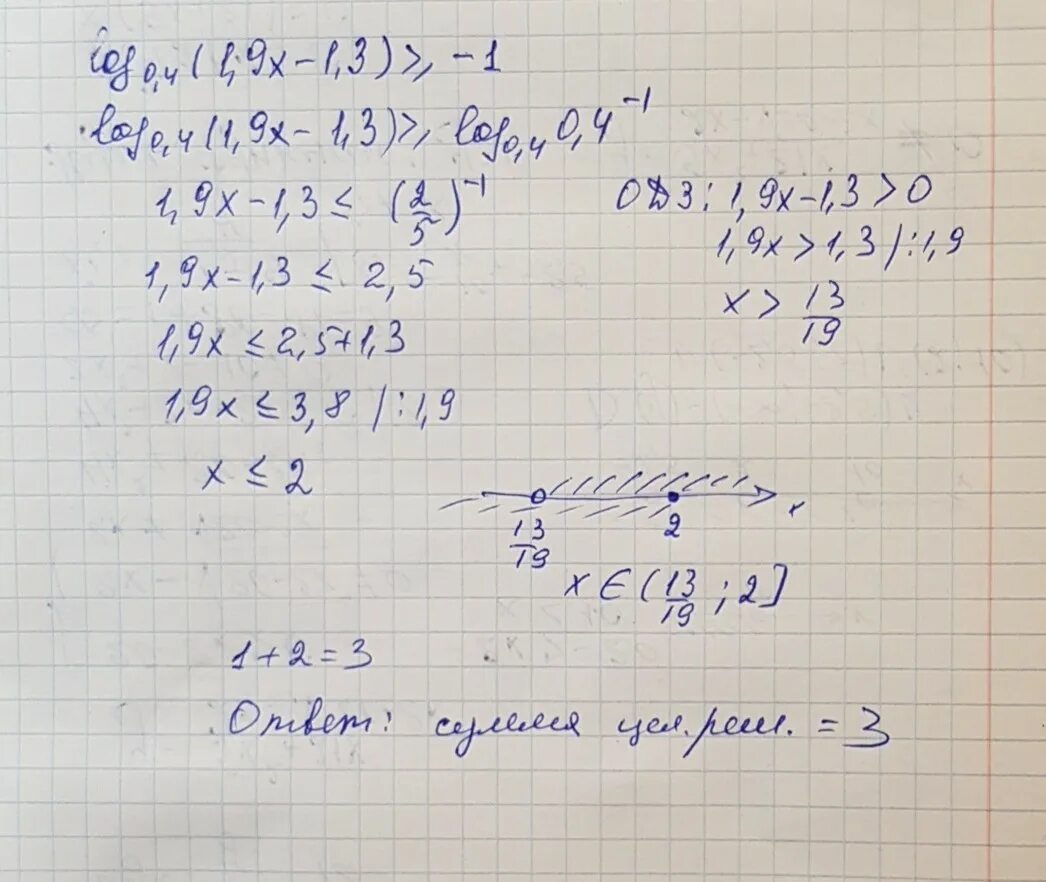 log₀,₄(1,9x-1,3)⩾-1
log₀,₄(1,9x-1,3)⩾log₀,₄0,4⁻¹
1,9x-1,3≤(2/5)⁻¹
1,9x-1,3≤2,5
1,9x≤2,5+1,3
1,9x≤3,8 /:1,9
x≤2
ОДЗ: 1,9x-1,3>0
1,9x>1,3 /:1,9
x>13/19
x
13/19 2
x∈(13/19;2]
1+2=3
Ответ: сумма цел.реш.=3